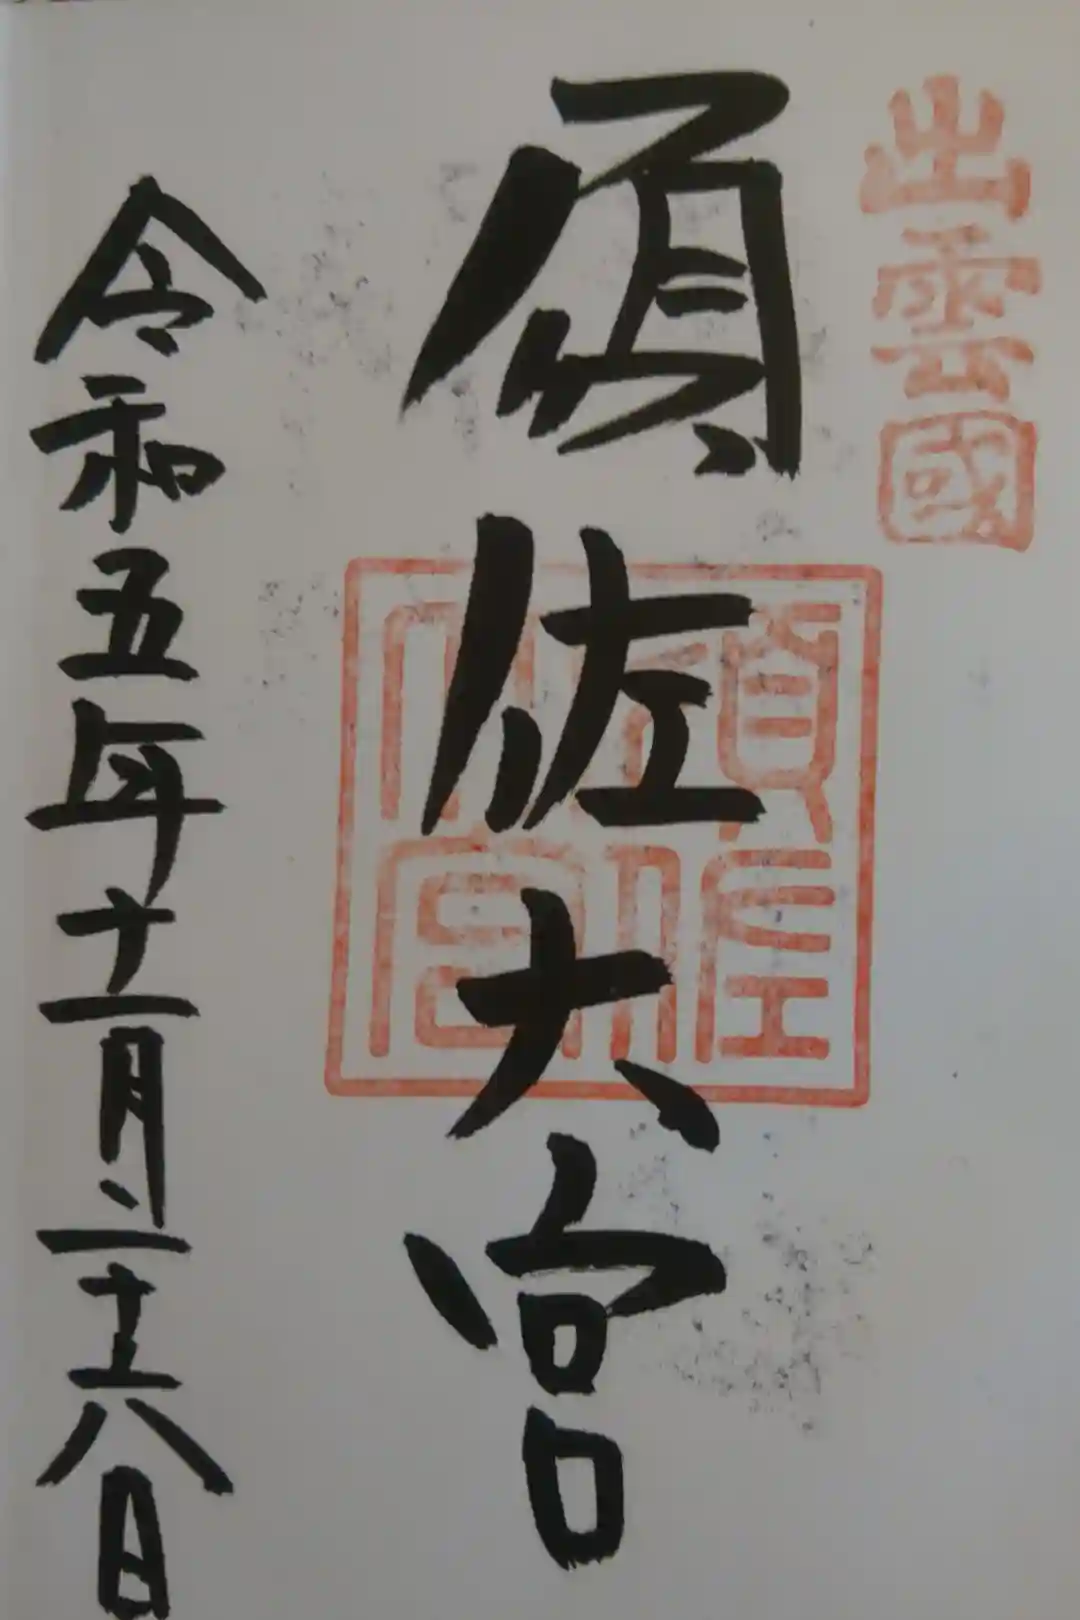 出雲國
須佐大宮
須佐
大宮
令和五年十一月二十六日